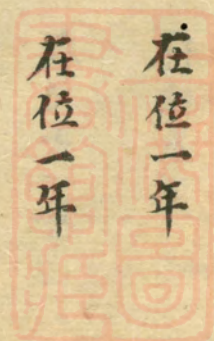 在位一年
在位一年